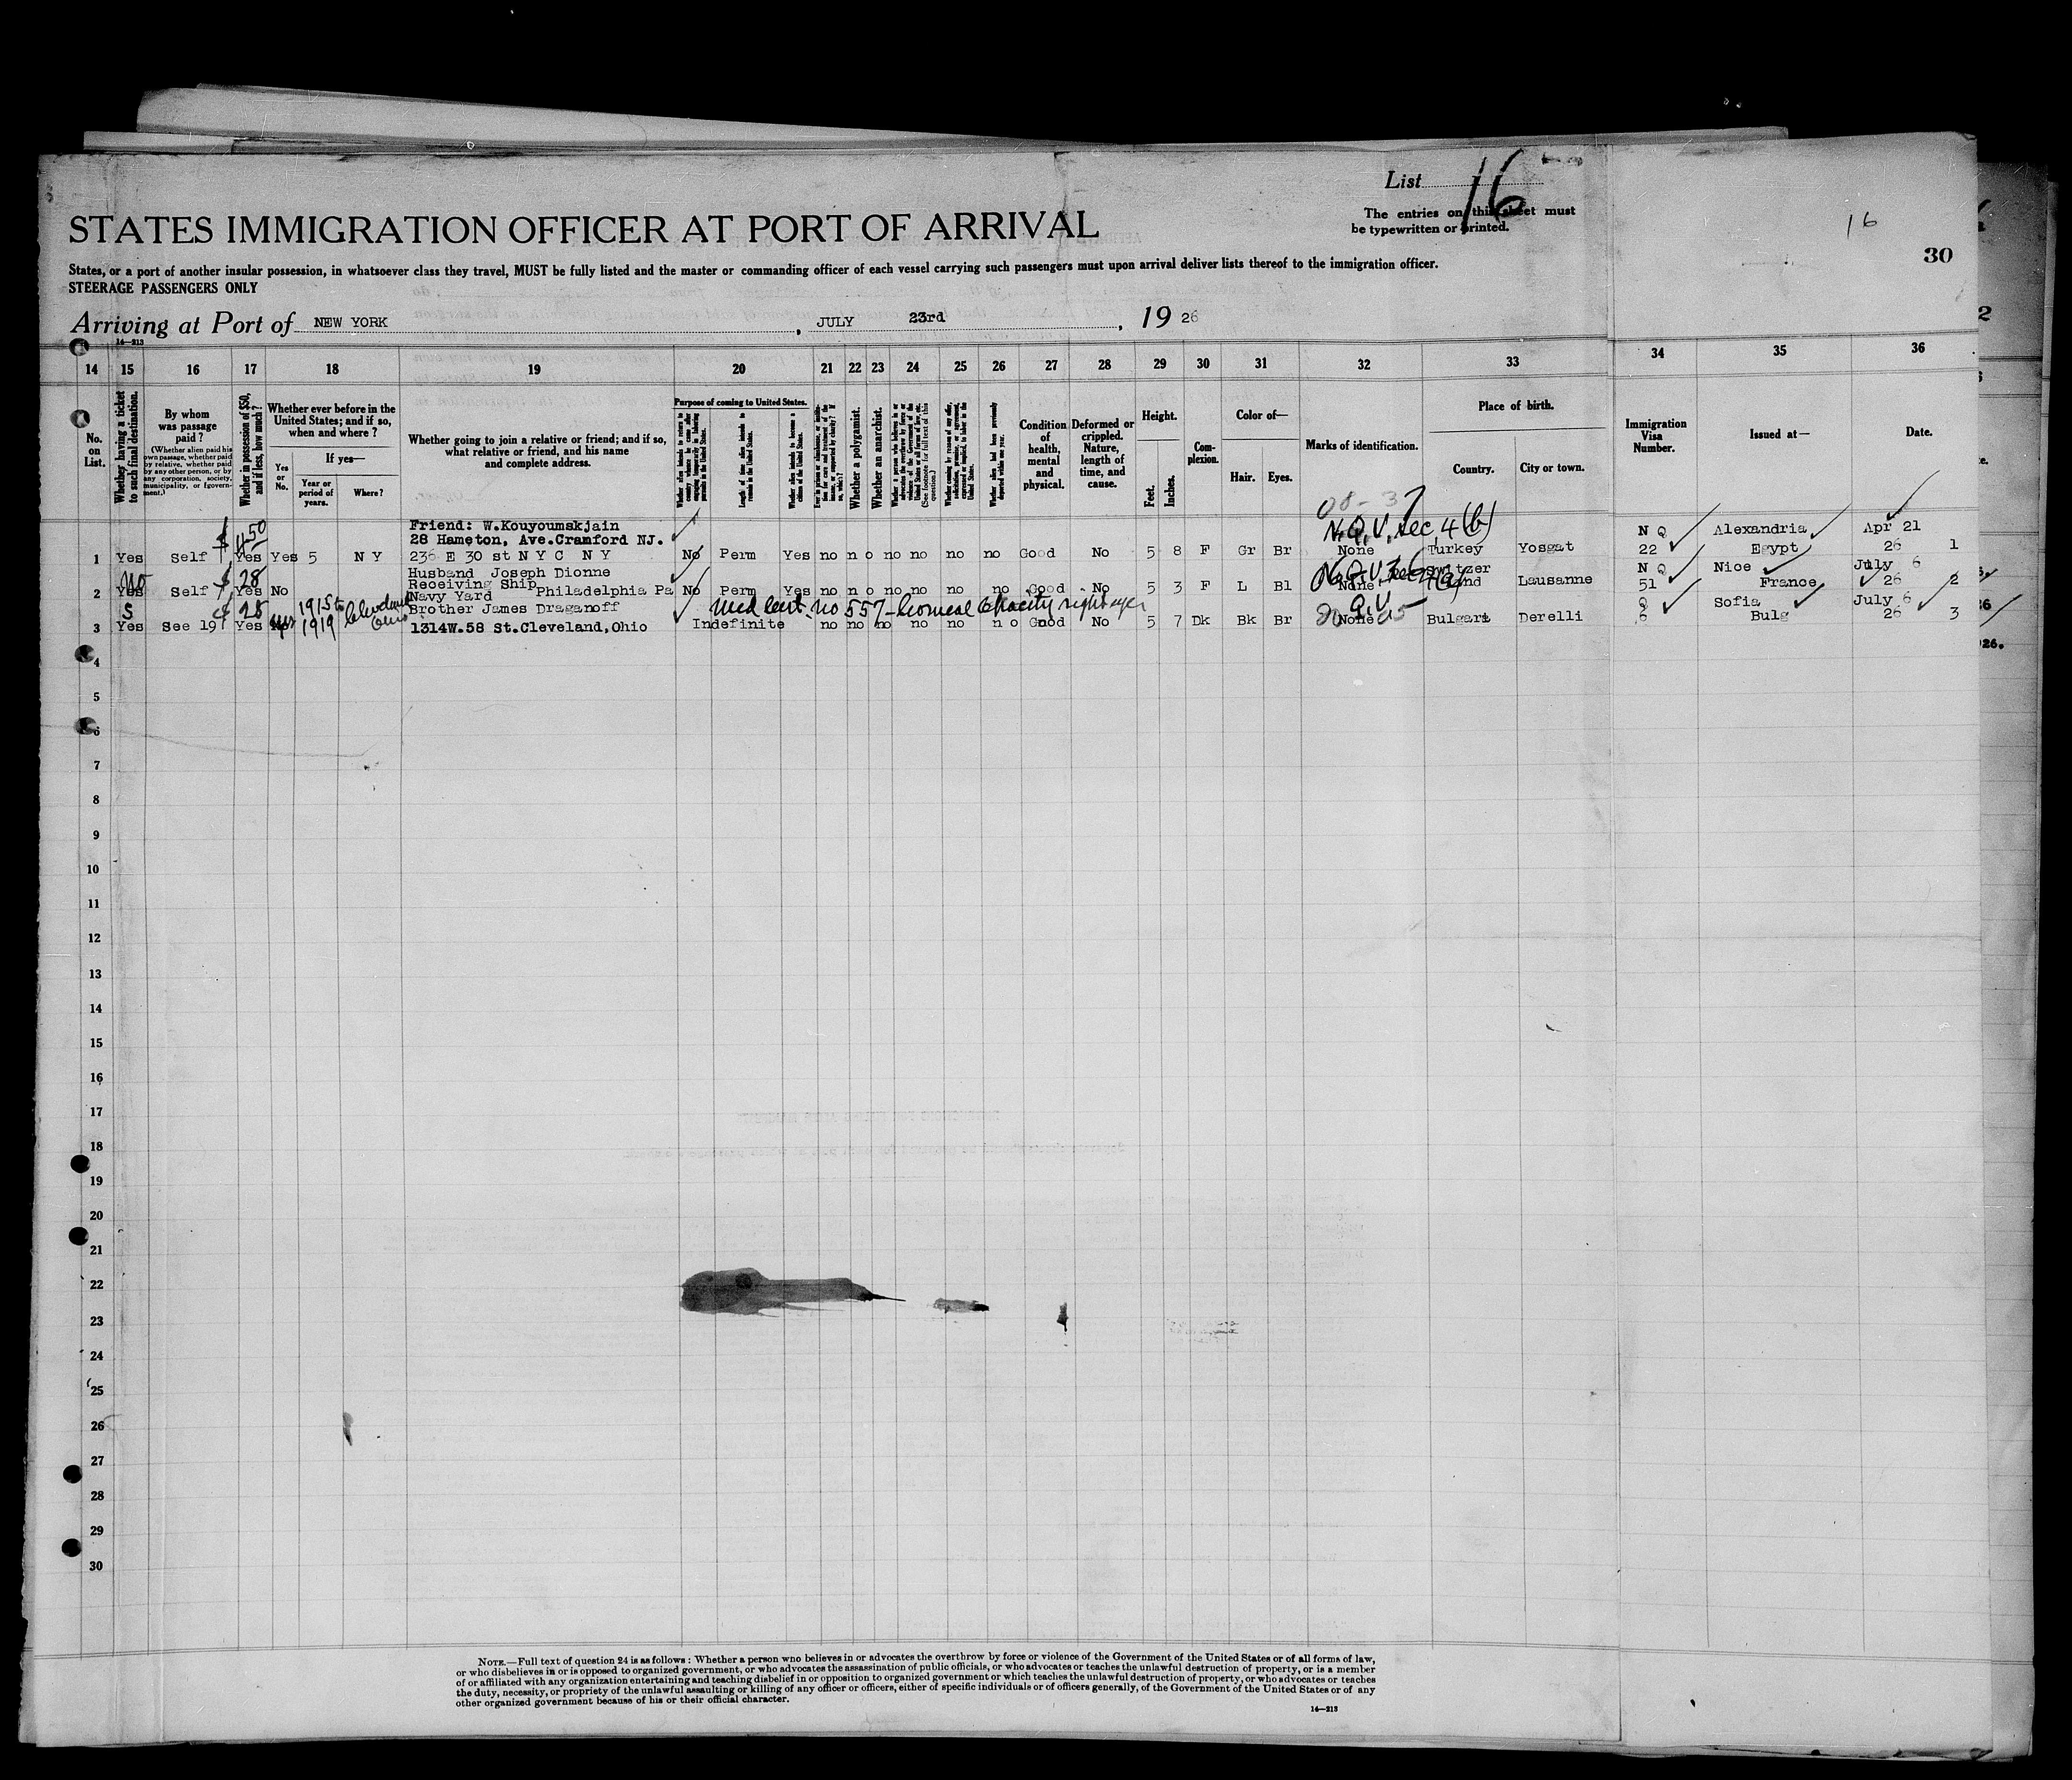 List 16
The entries on this sheet must
be typewritten or printed.
16
30
STATES IMMIGRATION OFFICER AT PORT OF ARRIVAL
States, or a port of another insular possession, in whatsoever class they travel, MUST be fully listed and the master or commanding officer of each vessel carrying such passengers must upon arrival deliver lists thereof to the immigration officer.
STEERAGE PASSENGERS ONLY
Arriving at Port of NEW YORK, JULY 23rd, 1926
14—213
14 15 16 17 18 19 20 21 22 23 24 25 26 27 28 29 30 31 32 33 34 35 36
No. on List.
Whether having a ticket to such final destination.
By whom was passage paid?
(Whether alien paid his own passage, whether paid by relative, whether paid by any other person, or by any corporation, society, municipality, or government.)
Whether in possession of $50, and if less, how much?
Whether ever before in the United States; and if so, when and where?
Yes or No.
If yes—
Year or period of years.
Where?
Whether going to join a relative or friend; and if so, what relative or friend, and his name and complete address.
Purpose of coming to United States.
Whether alien intends to return to country whence he came after engaging temporarily in laboring pursuits in the United States.
Length of time alien intends to remain in the United States.
Whether alien intends to become a citizen of the United States.
Ever in prison or almshouse, or institution for care and treatment of the insane, or supported by charity? If so, which?
Whether a polygamist.
Whether an anarchist.
Whether a person who believes in or advocates the overthrow by force or violence of the Government of the United States or all forms of law, etc. (See footnote for full text of this question.)
Whether coming by reason of any offer, solicitation, promise, or agreement, expressed or implied, to labor in the United States.
Whether alien had been previously deported within one year.
Condition of health, mental and physical.
Deformed or crippled. Nature, length of time, and cause.
Height.
Feet. Inches.
Complexion.
Color of—
Hair. Eyes.
Marks of identification.
Place of birth.
Country. City or town.
Immigration Visa Number.
Issued at—
Date.
Friend: W.Kouyoumskjain
28 Hameton, Ave.Cramford NJ.
N.Q.V. sec. 4(b)
N Q Alexandria Apr 21
$ 450
1 Yes Self Yes Yes 5 N Y 236 E 30 st N Y C N Y No Perm Yes no n o no no no no Good No 5 8 F Gr Br None Turkey Yosgat 22 Egypt 26 1
Husband Joseph Dionne
N Q Nice July 6
No $ 28
Receiving Ship
2 Yes Self Yes No Navy Yard Philadelphia Pa No Perm Yes no n o no no no no Good No 5 3 F L Bl None Switzerland Lausanne 51 France 26 2
S $ 25 1915 to Cleveland Brother James Draganoff Med cert. no 557— Corneal Opacity right eye Q.V. Q Sofia July 6
3 Yes See 19 Yes yes 1919 Ohio 1314W.58 St.Cleveland,Ohio Indefinite no no no no no n o Good No 5 7 Dk Bk Br None Bulgari Derelli 6 Bulg 26 3
4
5
6
7
8
9
10
11
12
13
14
15
16
17
18
19
20
21
22
23
24
25
26
27
28
29
30
NOTE.—Full text of question 24 is as follows: Whether a person who believes in or advocates the overthrow by force or violence of the Government of the United States or of all forms of law,
or who disbelieves in or is opposed to organized government, or who advocates the assassination of public officials, or who advocates or teaches the unlawful destruction of property, or is a member
of or affiliated with any organization entertaining and teaching disbelief in or opposition to organized government or which teaches the unlawful destruction of property, or who advocates or teaches
the duty, necessity, or propriety of the unlawful assaulting or killing of any officer or officers, either of specific individuals or of officers generally, of the Government of the United States or of any
other organized government because of his or their official character.
14—213